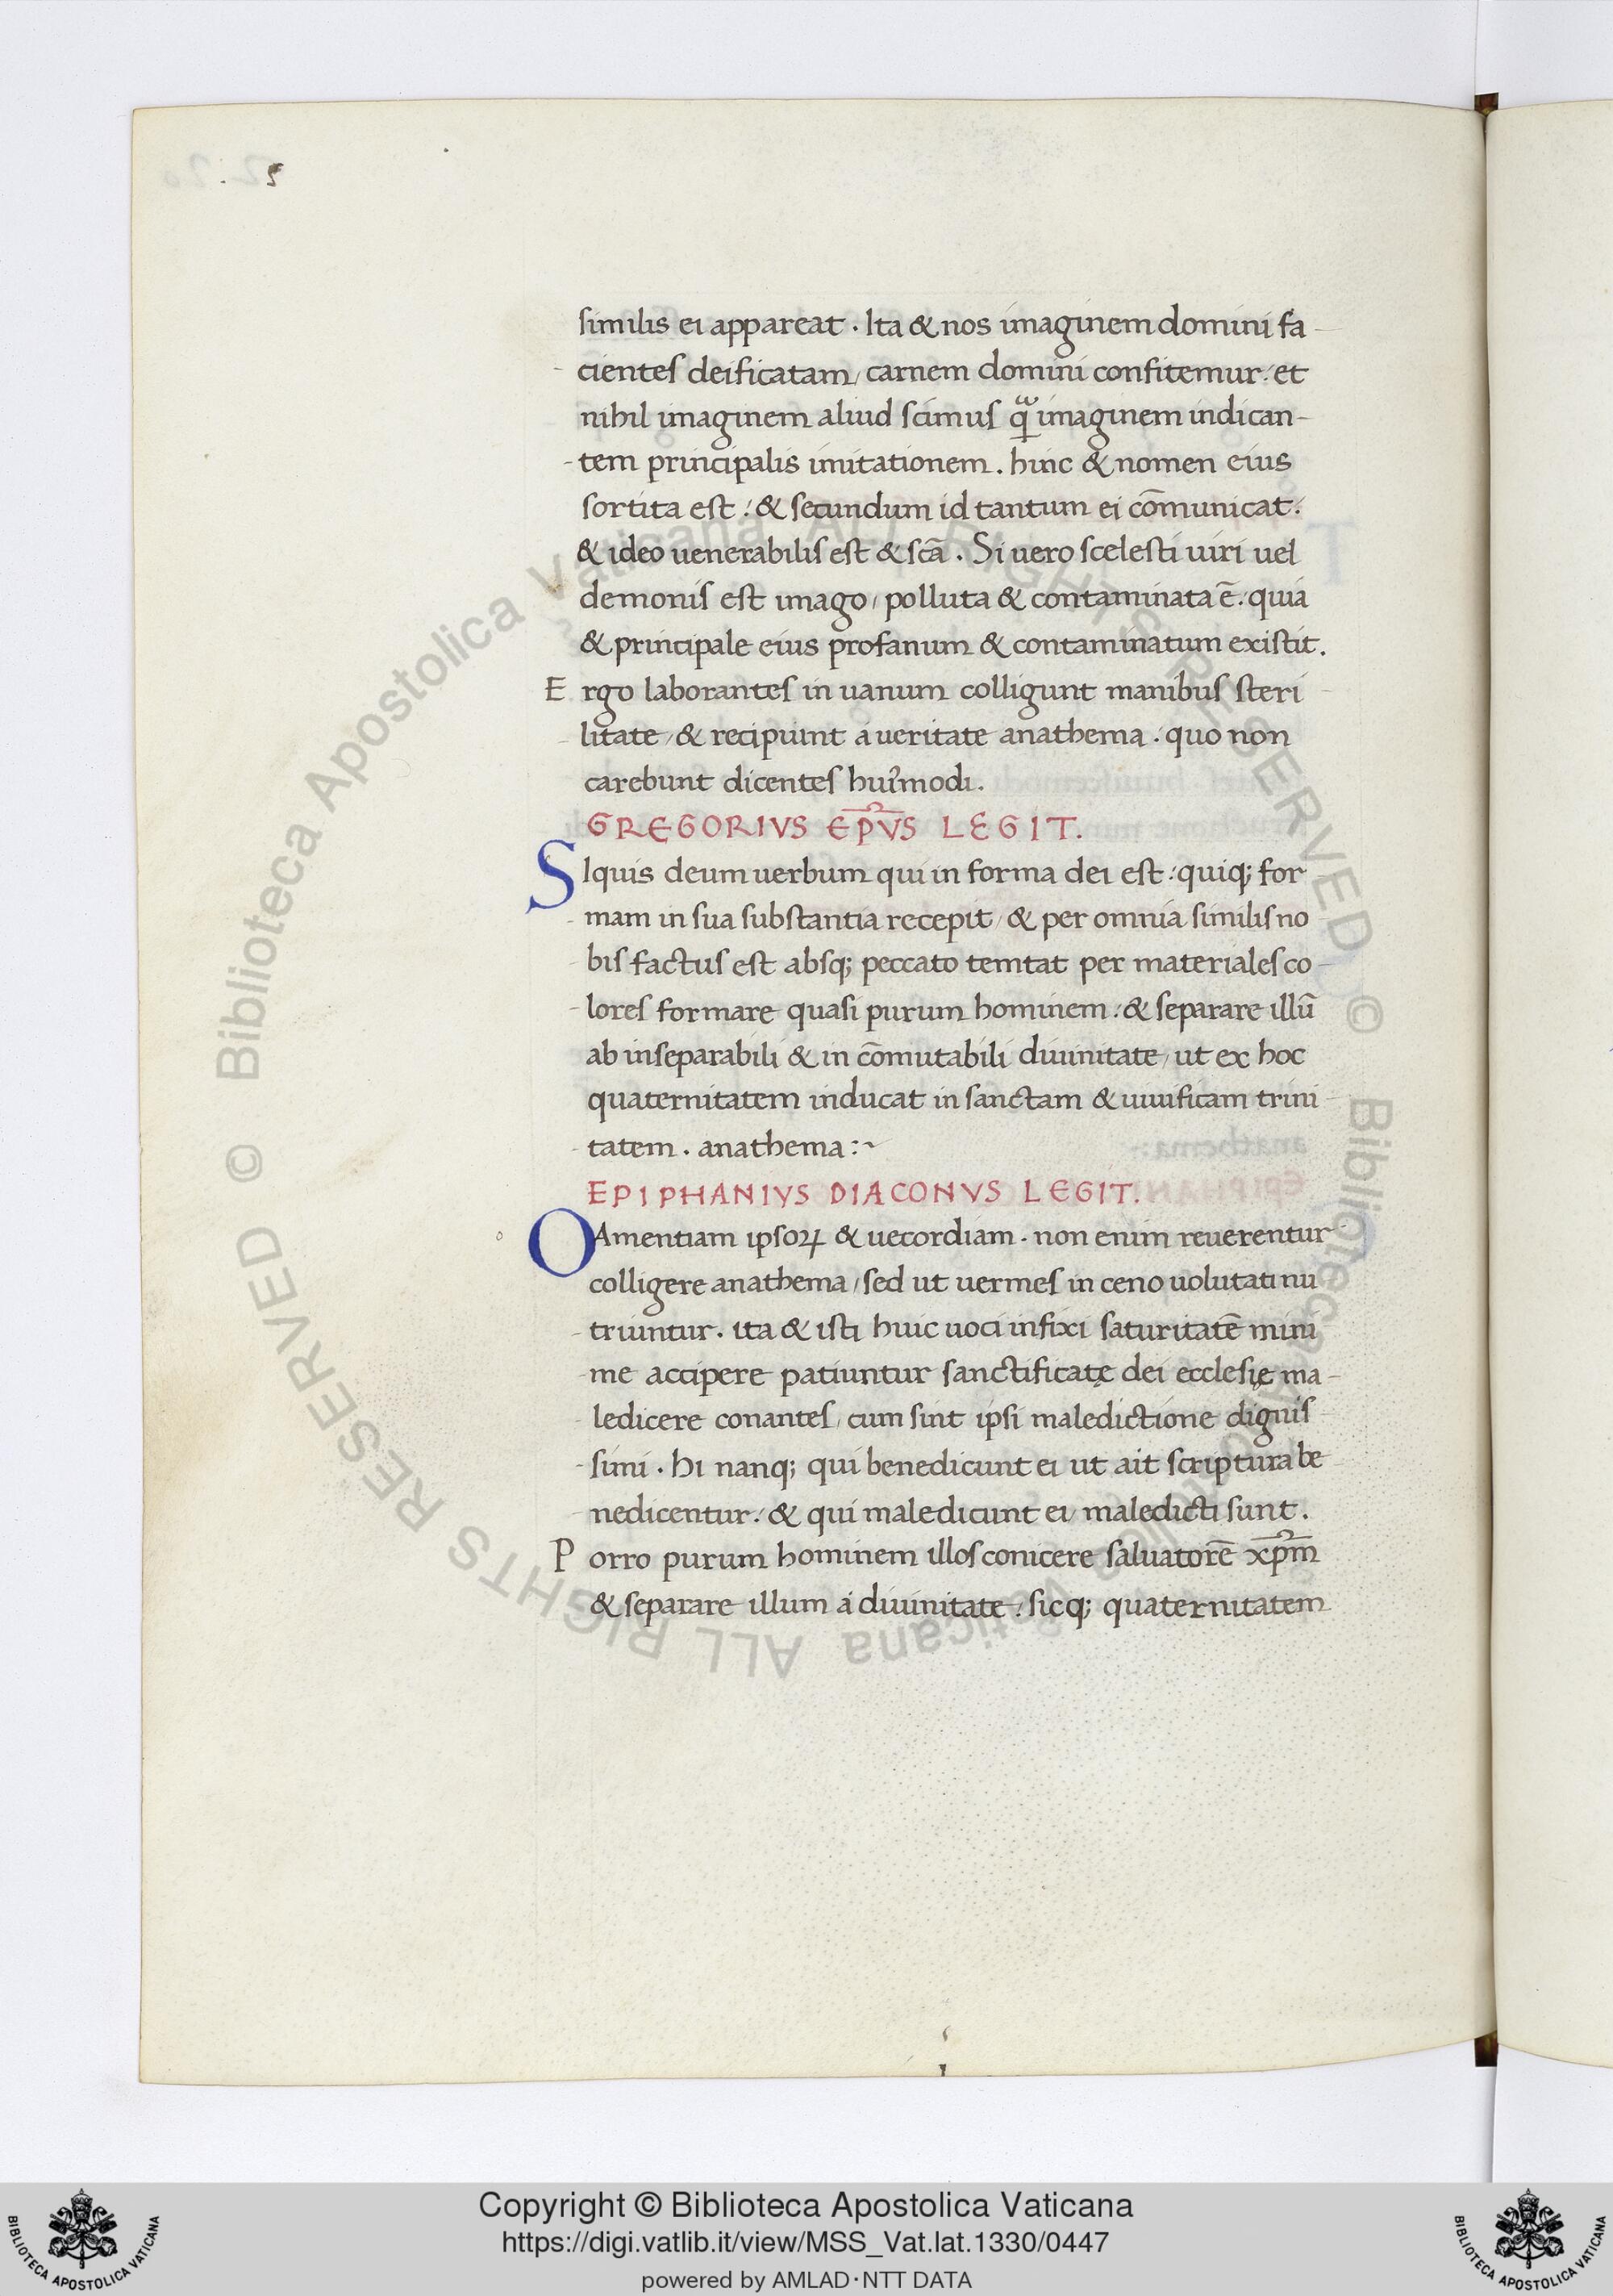 similis ei appareat. Ita & nos imaginem domini fa
cientes deificatam, carnem domini confitemur: et
nihil imaginem aliud scimus qͣ imaginem indican-
tem principalis imitationem. hinc & nomen eius
sortita est: & secundum id tantum ei cōmunicat:
& ideo uenerabilis est & scā. Si uero scelesti uiri uel
demonis est imago, polluta & contaminata ē. quia
& principale eius profanum & contaminatum existit.
Ergo laborantes in uanum colligunt manibus steri
litate, & recipiunt á ueritate anathema. quo non
carebunt dicentes huiꝰmodi.
GREGORIVS EP̄VS LEGIT.
SIquis deum uerbum qui in forma dei est: quiq; for
mam in sua substantia recepit, & per omnia similis no
bis factus est absq; peccato temtat per materiales co
lores formare quasi purum hominem: & separare illū
ab inseparabili & in cōmutabili diuinitate, ut ex hoc
quaternitatem inducat in sanctam & uiuificam trini
tatem. anathema:~
EPIPHANIVS DIACONVS LEGIT.
OAmentiam ipsoꝝ & uecordiam. non enim reuerentur
colligere anathema, sed ut uermes in ceno uolutati nu
triuntur. ita & isti huic uoci infixi saturitatē mini
me accipere patiuntur sanctificatę dei ecclesię ma-
ledicere conantes, cum sint ipsi maledictione dignis
simi. hi nanq; qui benedicunt ei ut ait scriptura be
nedicentur: & qui maledicunt ei, maledicti sunt.
Porro purum hominem illos conicere saluatorē xp̄m
& separare illum á diuinitate: sicq; quaternitatem
© Biblioteca Apostolica Vaticana ALL RIGHTS RESERVED © Biblioteca Apostolica Vaticana ALL RIGHTS RESERVED
BIBLIOTECA APOSTOLICA VATICANA
Copyright © Biblioteca Apostolica Vaticana
https://digi.vatlib.it/view/MSS_Vat.lat.1330/0447
powered by AMLAD·NTT DATA
BIBLIOTECA APOSTOLICA VATICANA